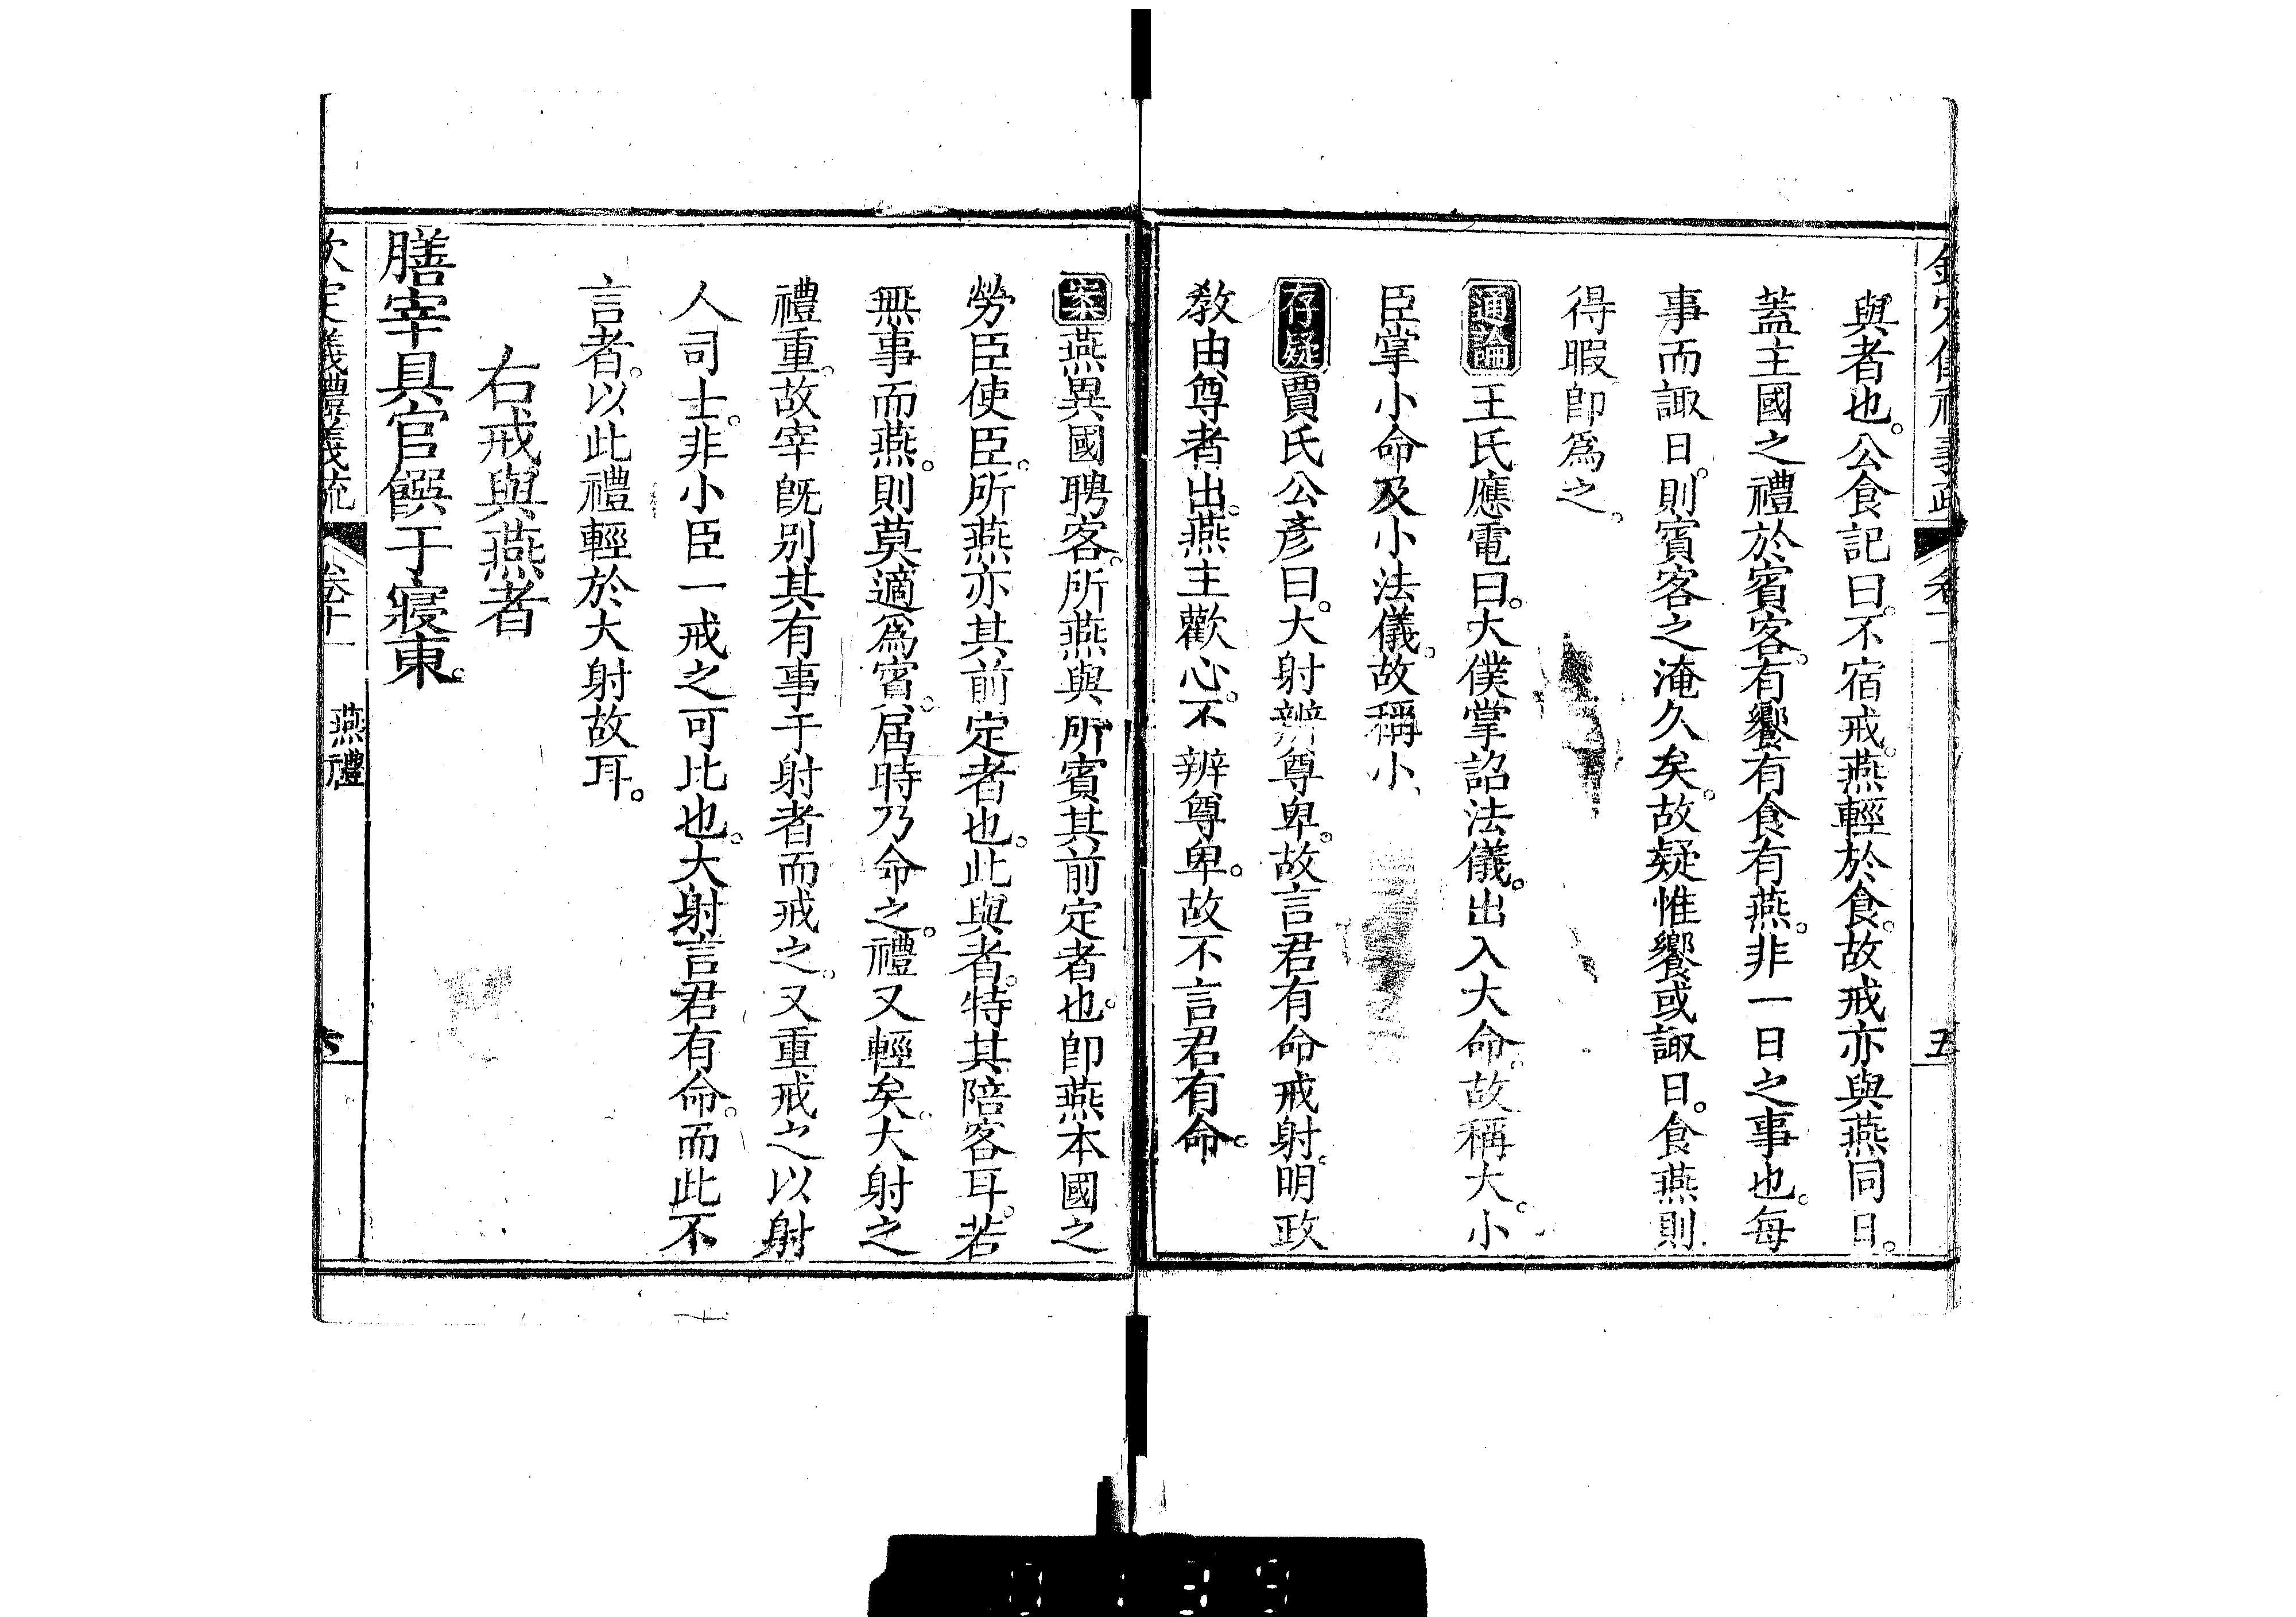 欽定儀禮義疏 卷十一 五
與者也。公食記曰。不宿戒。燕輕於食。故戒亦與燕同日。
蓋主國之禮於賓客。有饗有食有燕。非一日之事也。每
事而諏日。則賓客之淹久矣。故疑惟饗或諏日。食燕則
得暇卽爲之。
通論王氏應電曰。大僕掌詔法儀。出入大命。故稱大。小
臣掌小命及小法儀。故稱小。
存疑賈氏公彥曰。大射辨尊卑。故言君有命戒射。明政
敎由尊者出。燕主歡心。不辨尊卑。故不言君有命。
案燕異國聘客。所燕與所賓其前定者也。卽燕本國之
勞臣使臣。所燕亦其前定者也。此與者。特其陪客耳。若
無事而燕。則莫適爲賓。屆時乃命之。禮又輕矣。大射之
禮重。故宰旣別其有事于射者而戒之。又重戒之以射
人司士。非小臣一戒之可比也。大射言君有命。而此不
言者。以此禮輕於大射故耳。
右戒與燕者
膳宰具官饌于寢東。
欽定儀禮義疏 卷十一 燕禮 六